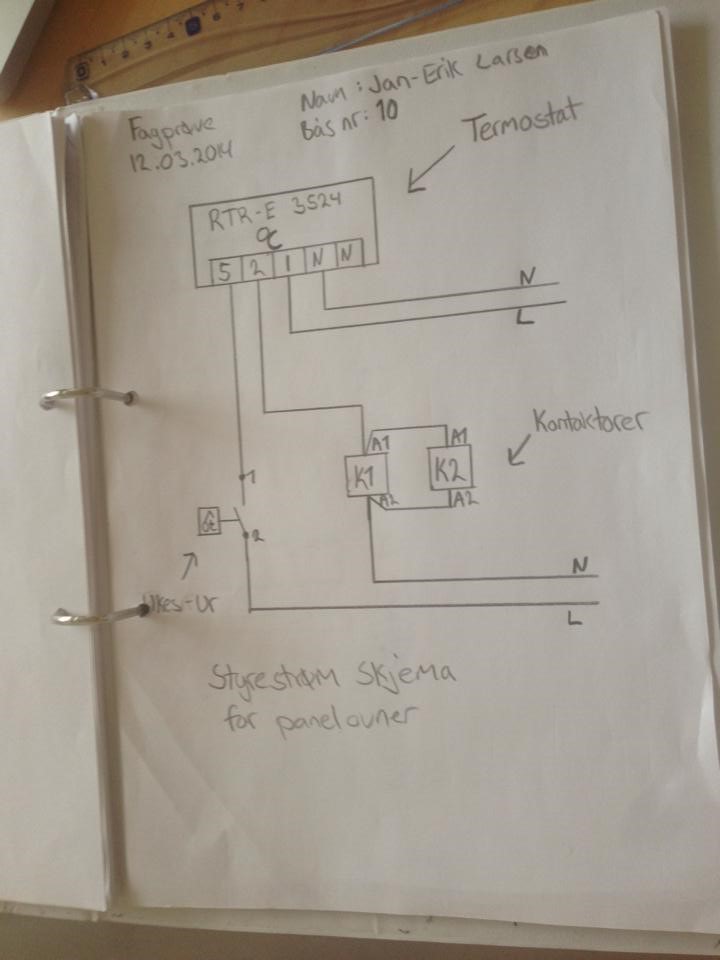 Fagprøve
12.03.2014
Navn : Jan-Erik Larsen
Bås nr: 10
Termostat
RTR-E 3524
°C
5 2 1 N N
N
L
Kontaktorer
A1 A1
K1 K2
A2 A2
1
2
Ukes-Ur
N
L
Styrestrøm Skjema
for panelovner